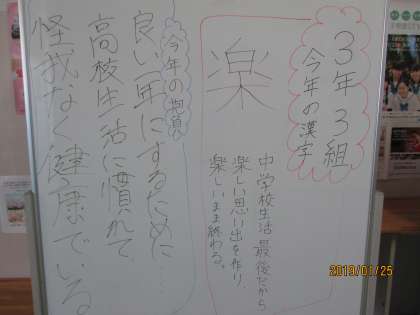 3年3組
今年の漢字
楽
中学校生活最後だから
楽しい思い出を作り
楽しいまま終わる。
今年の抱負
良い一年にするために……
高校生活に慣れて
怪我なく健康でいる
2019/01/25